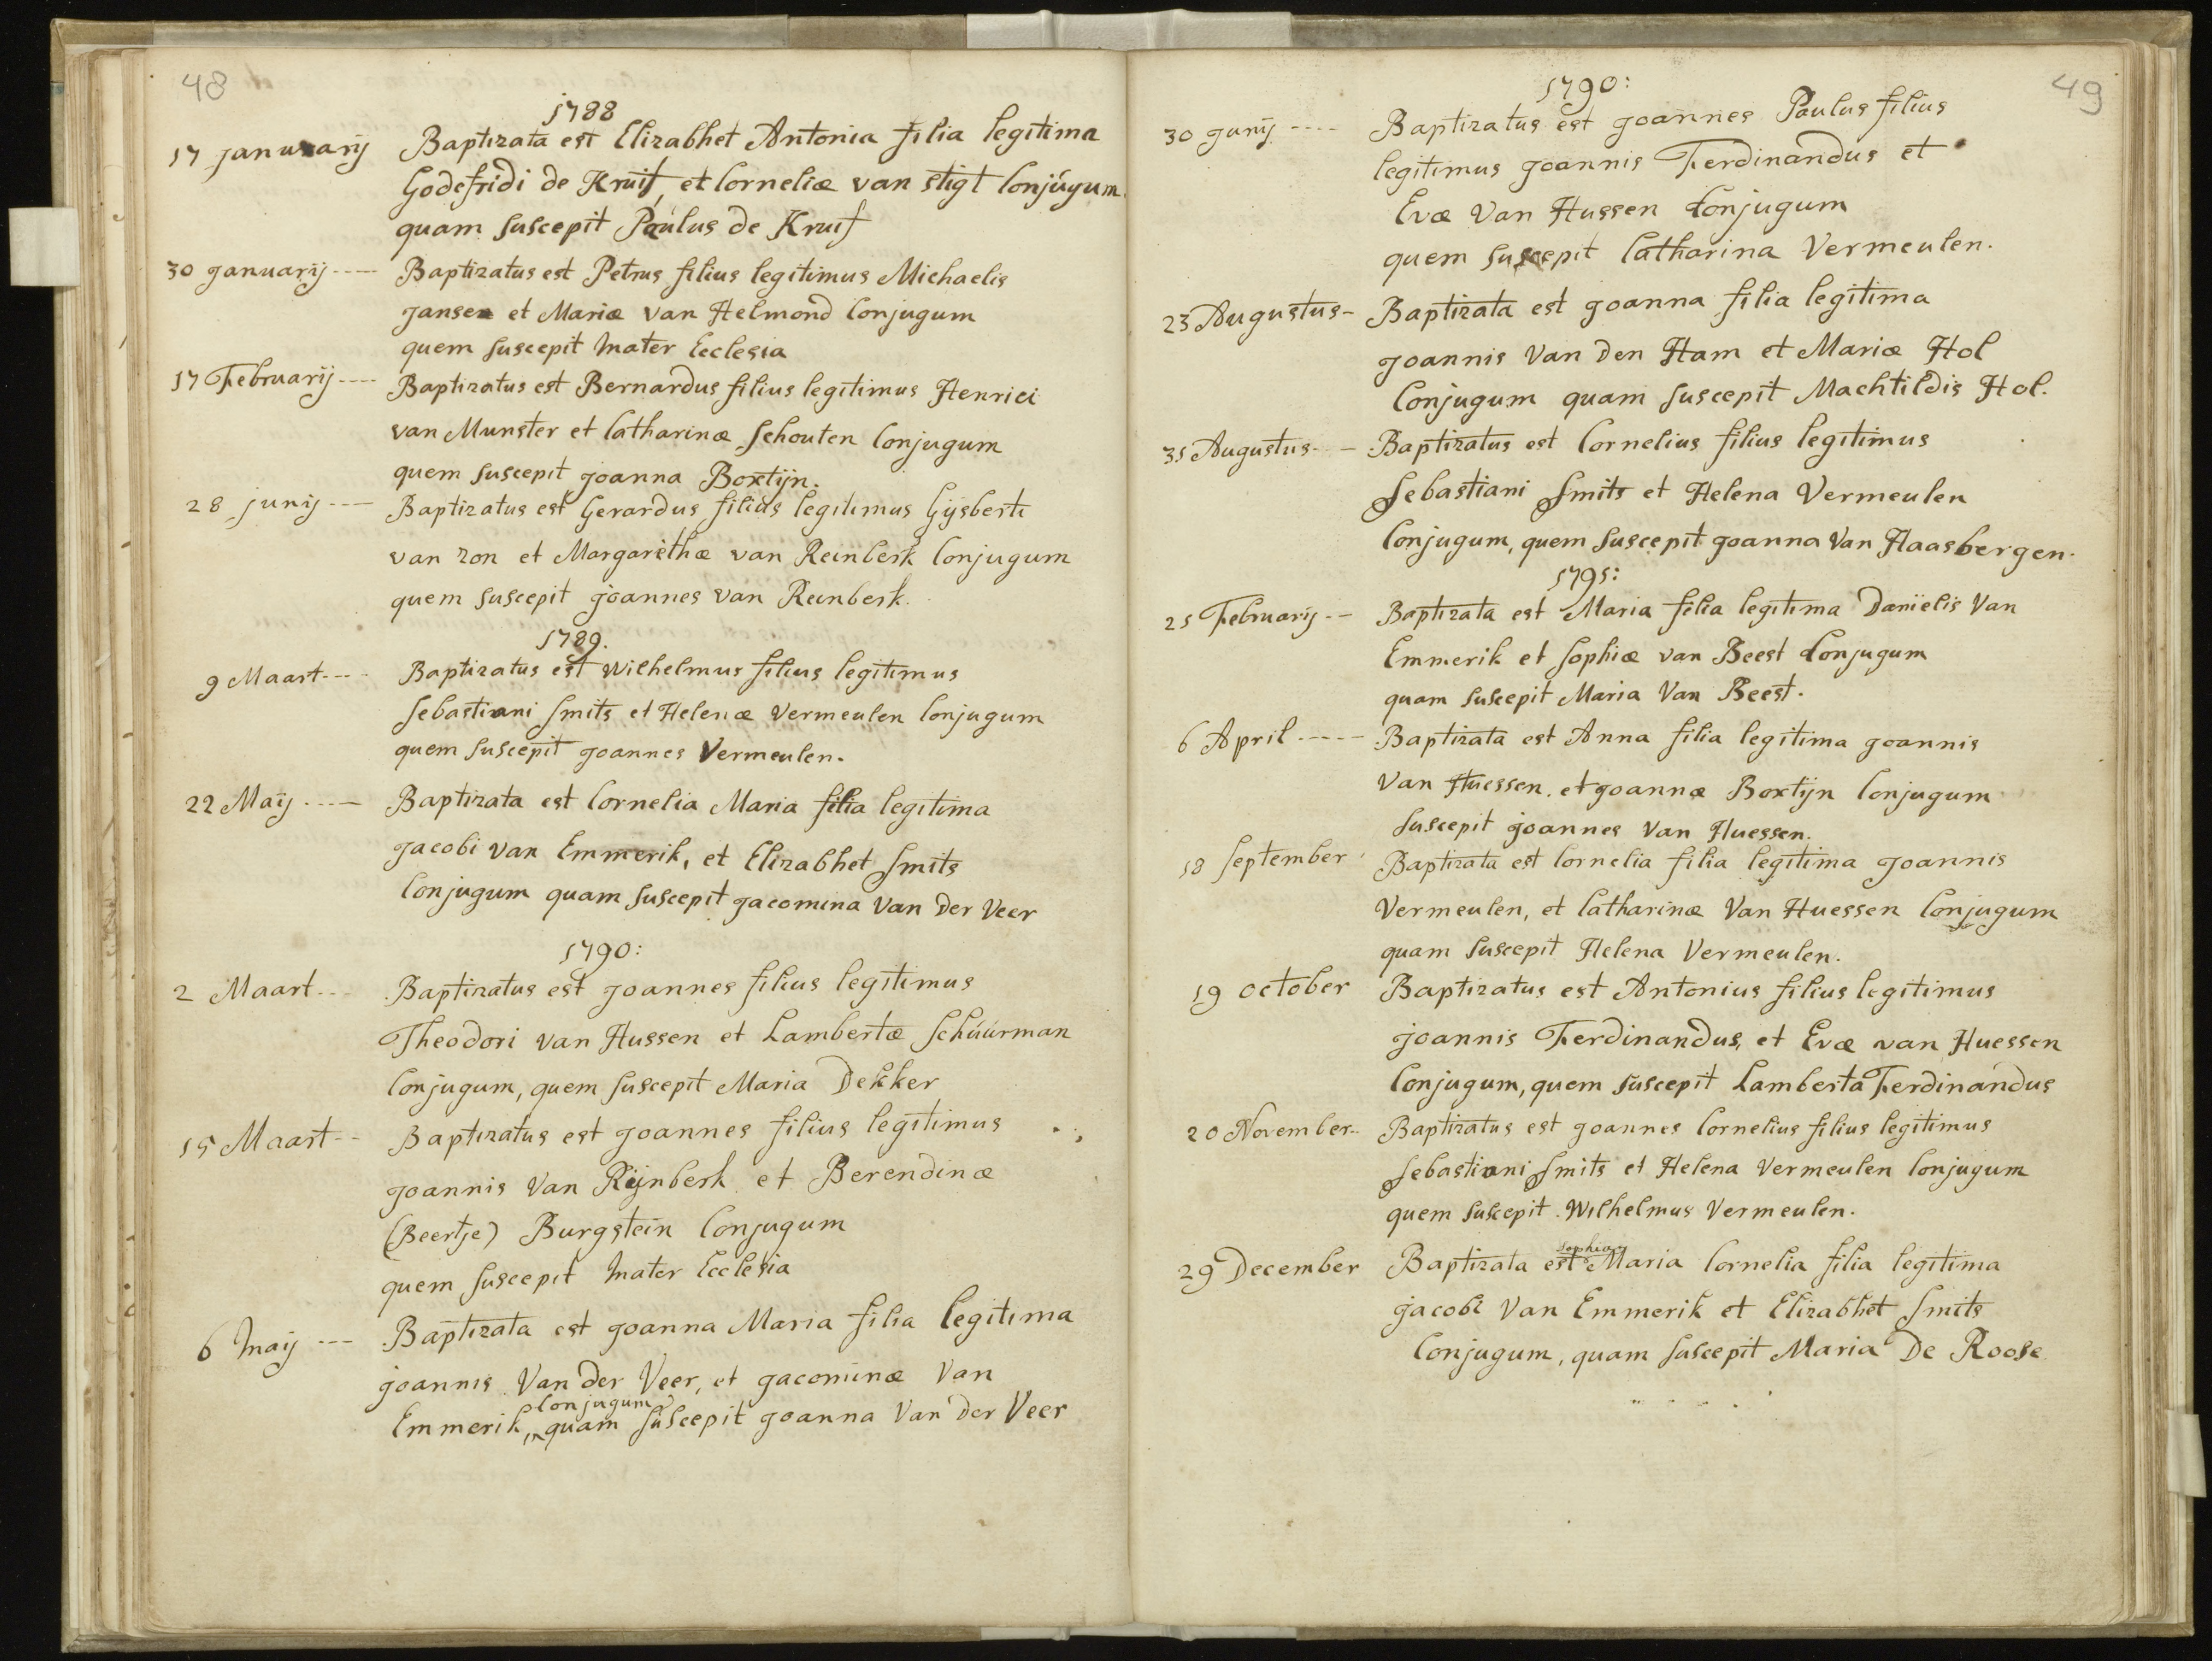 48
1788
17 januarij Baptizata est Elizabhet Antonia filia legitima
Godefridi de Kruif, et Corneliæ van Stigt Conjúgum
quam suscepit Paulus de Kruif
30 januarij ---- Baptizatus est Petrus filius legitimus Michaelis
jansen et Mariæ van Helmond Conjugum
quem suscepit Mater Ecclesia
17 Februarij ---- Baptizatus est Bernardus filius legitimus Henrici
van Munster et Catharinæ Schouten Conjugum
quem suscepit joanna Boxtijn.
28 junij ---- Baptizatus est Gerardus filius legitimus Gijsberti
van zon et Margarethæ van Reinberk Conjugum
quem suscepit joannes van Reinberk.
1789.
9 Maart ---- Baptizatus est Wilhelmus filius legitimus
Sebastiani Smits et Helenæ Vermeulen Conjugum
quem suscepit joannes Vermeulen.
22 Maij ---- Baptizata est Cornelia Maria filia legitima
jacobi van Emmerik, et Elizabhet Smits
Conjugum quam suscepit jacomina Van Der Veer
1790:
2 Maart --- Baptizatus est joannes filius legitimus
Theodori van Hussen et Lambertæ Schúúrman
Conjugum, quem suscepit Maria Dekker
15 Maart -- Baptizatus est joannes filius legitimus
joannis Van Rijnberk et Berendinæ
(Beertje) Burgstein Conjugum
quem suscepit Mater Ecclesia
6 Maij --- Baptizata est joanna Maria filia legitima
joannis Van der Veer, et jacominæ Van
Conjugum
Emmerik, quam suscepit joanna Van der Veer
49
1790:
30 junij ---- Baptizatus est joannes Paulus filius
legitimus joannis Ferdinandus et
Evæ Van Hussen Conjugum
quem suscepit Catharina Vermeulen.
23 Augustus - Baptizata est joanna filia legitima
joannis Van Den Ham et Mariæ Hol
Conjugum quam suscepit Machtildis Hol.
31 Augustus --- Baptizatus est Cornelius filius legitimus
Sebastiani Smits et Helena Vermeulen
Conjugum, quem suscepit joanna Van Haasbergen.
1791:
21 Februarij -- Baptizata est Maria filia legitima Danielis Van
Emmerik et Sophiæ van Beest Conjugum
quam suscepit Maria Van Beest.
6 April ----- Baptizata est Anna filia legitima joannis
Van Huessen, et joannæ Boxtijn Conjugum
suscepit joannes Van Huessen.
18 September Baptizata est Cornelia filia legitima joannis
Vermeulen, et Catharinæ Van Huessen Conjugum
quam suscepit Helena Vermeulen.
19 october Baptizatus est Antonius filius legitimus
joannis Ferdinandus, et Evæ van Huessen
Conjugum, quem suscepit Lamberta Ferdinandus
20 November -- Baptizatus est joannes Cornelius filius legitimus
Sebastiani Smits et Helena Vermeulen Conjugum
quem suscepit Wilhelmus Vermeulen.
Sophia
29 December Baptizata est Maria Cornelia filia legitima
jacobi Van Emmerik et Elizabhet Smits
Conjugum, quam suscepit Maria De Roose